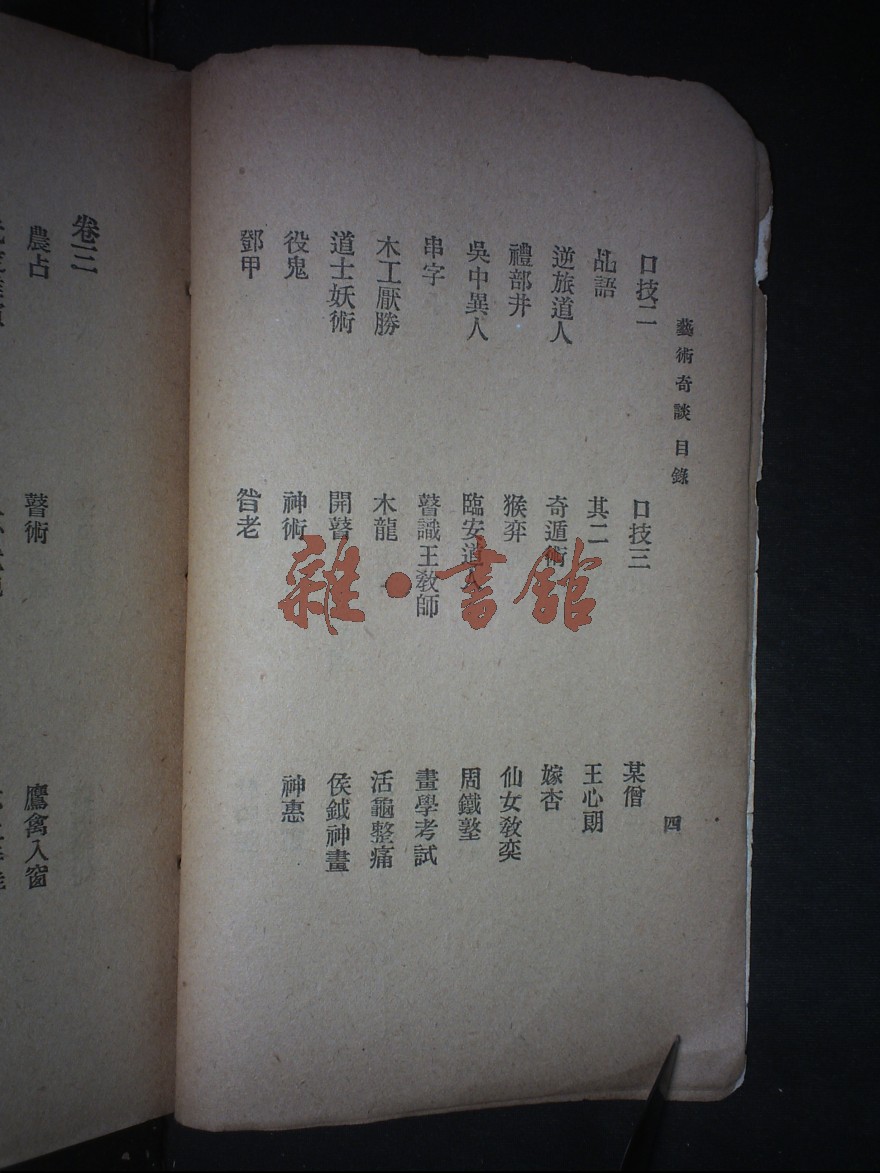 藝術奇談 目錄
四
口技二
口技三
某僧
乩語
其二
王心朗
逆旅道人
奇遁術
嫁杏
禮部井
猴弈
仙女教奕
吳中異人
臨安道人
周鐵墪
串字
瞽識王教師
畫學考試
木工厭勝
木龍
活龜整痛
道士妖術
開瞽
侯鉞神畫
役鬼
神術
神惠
鄧甲
昝老
卷三
農占
瞽術
鷹禽入窗
雜·書館